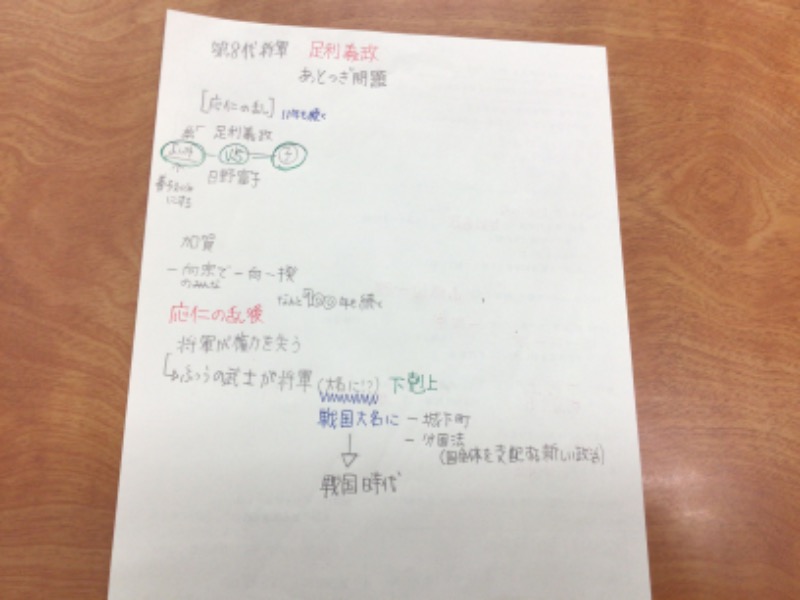 第8代将軍 足利義政
あとつぎ問題
[応仁の乱] 11年も続く
足利義政
VS 子
日野富子
養子
にする
加賀
一向宗で一向一揆
のみんな
なんと100年も続く
応仁の乱後
将軍が権力を失う
↳ふつうの武士が将軍(大名に!?) 下剋上
戦国大名に - 城下町
- 分国法
(国自体を支配する新しい政治)
戦国時代